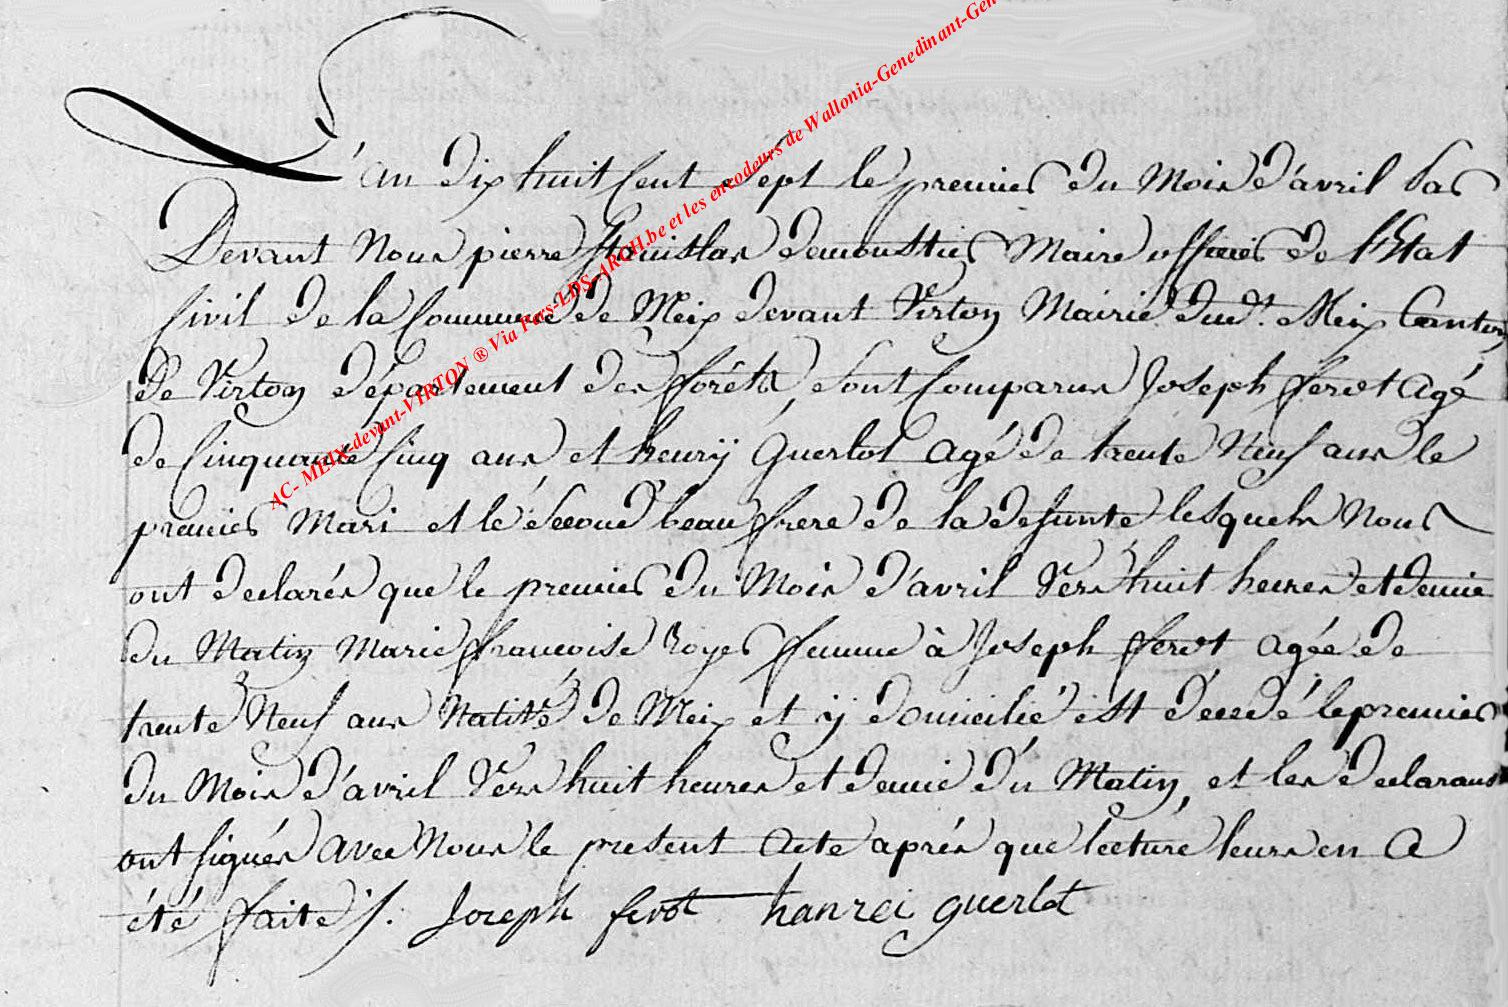 L'an dix huit Cent Sept le premier du Mois d'avril Par
Devant Nous pierre Stanislas demoustier Maire officier de l'Etat
Civil de la Commune de Meix devant Virton Mairie dud. Meix Canton
De Virton département des forêts, Sont Comparus Joseph ferot Agé
de Cinquante Cinq ans et henrÿ Guerlot Agé De trente Neuf ans le
premier Mari et le Second beau frere de la defunte lesquels Nous
ont declarés que le premier du Mois d'avril Vers huit heures et demie
du Matin Marie francoise Royer femme à Joseph ferot Agée de
trente Neuf ans Natité de Meix et ÿ domicilié est décedé le premier
du Mois d'avril Vers huit heures et demie du Matin, et les declarans
ont signés Avec Nous le present Acte après que lecture leurs en A
été faite ·/. Joseph ferot hanrei guerlot
AC- MEIX-devant-VIRTON ® Via Pars-LDS-ARCH.be et les encodeurs de Wallonia-Genedinant-Gen